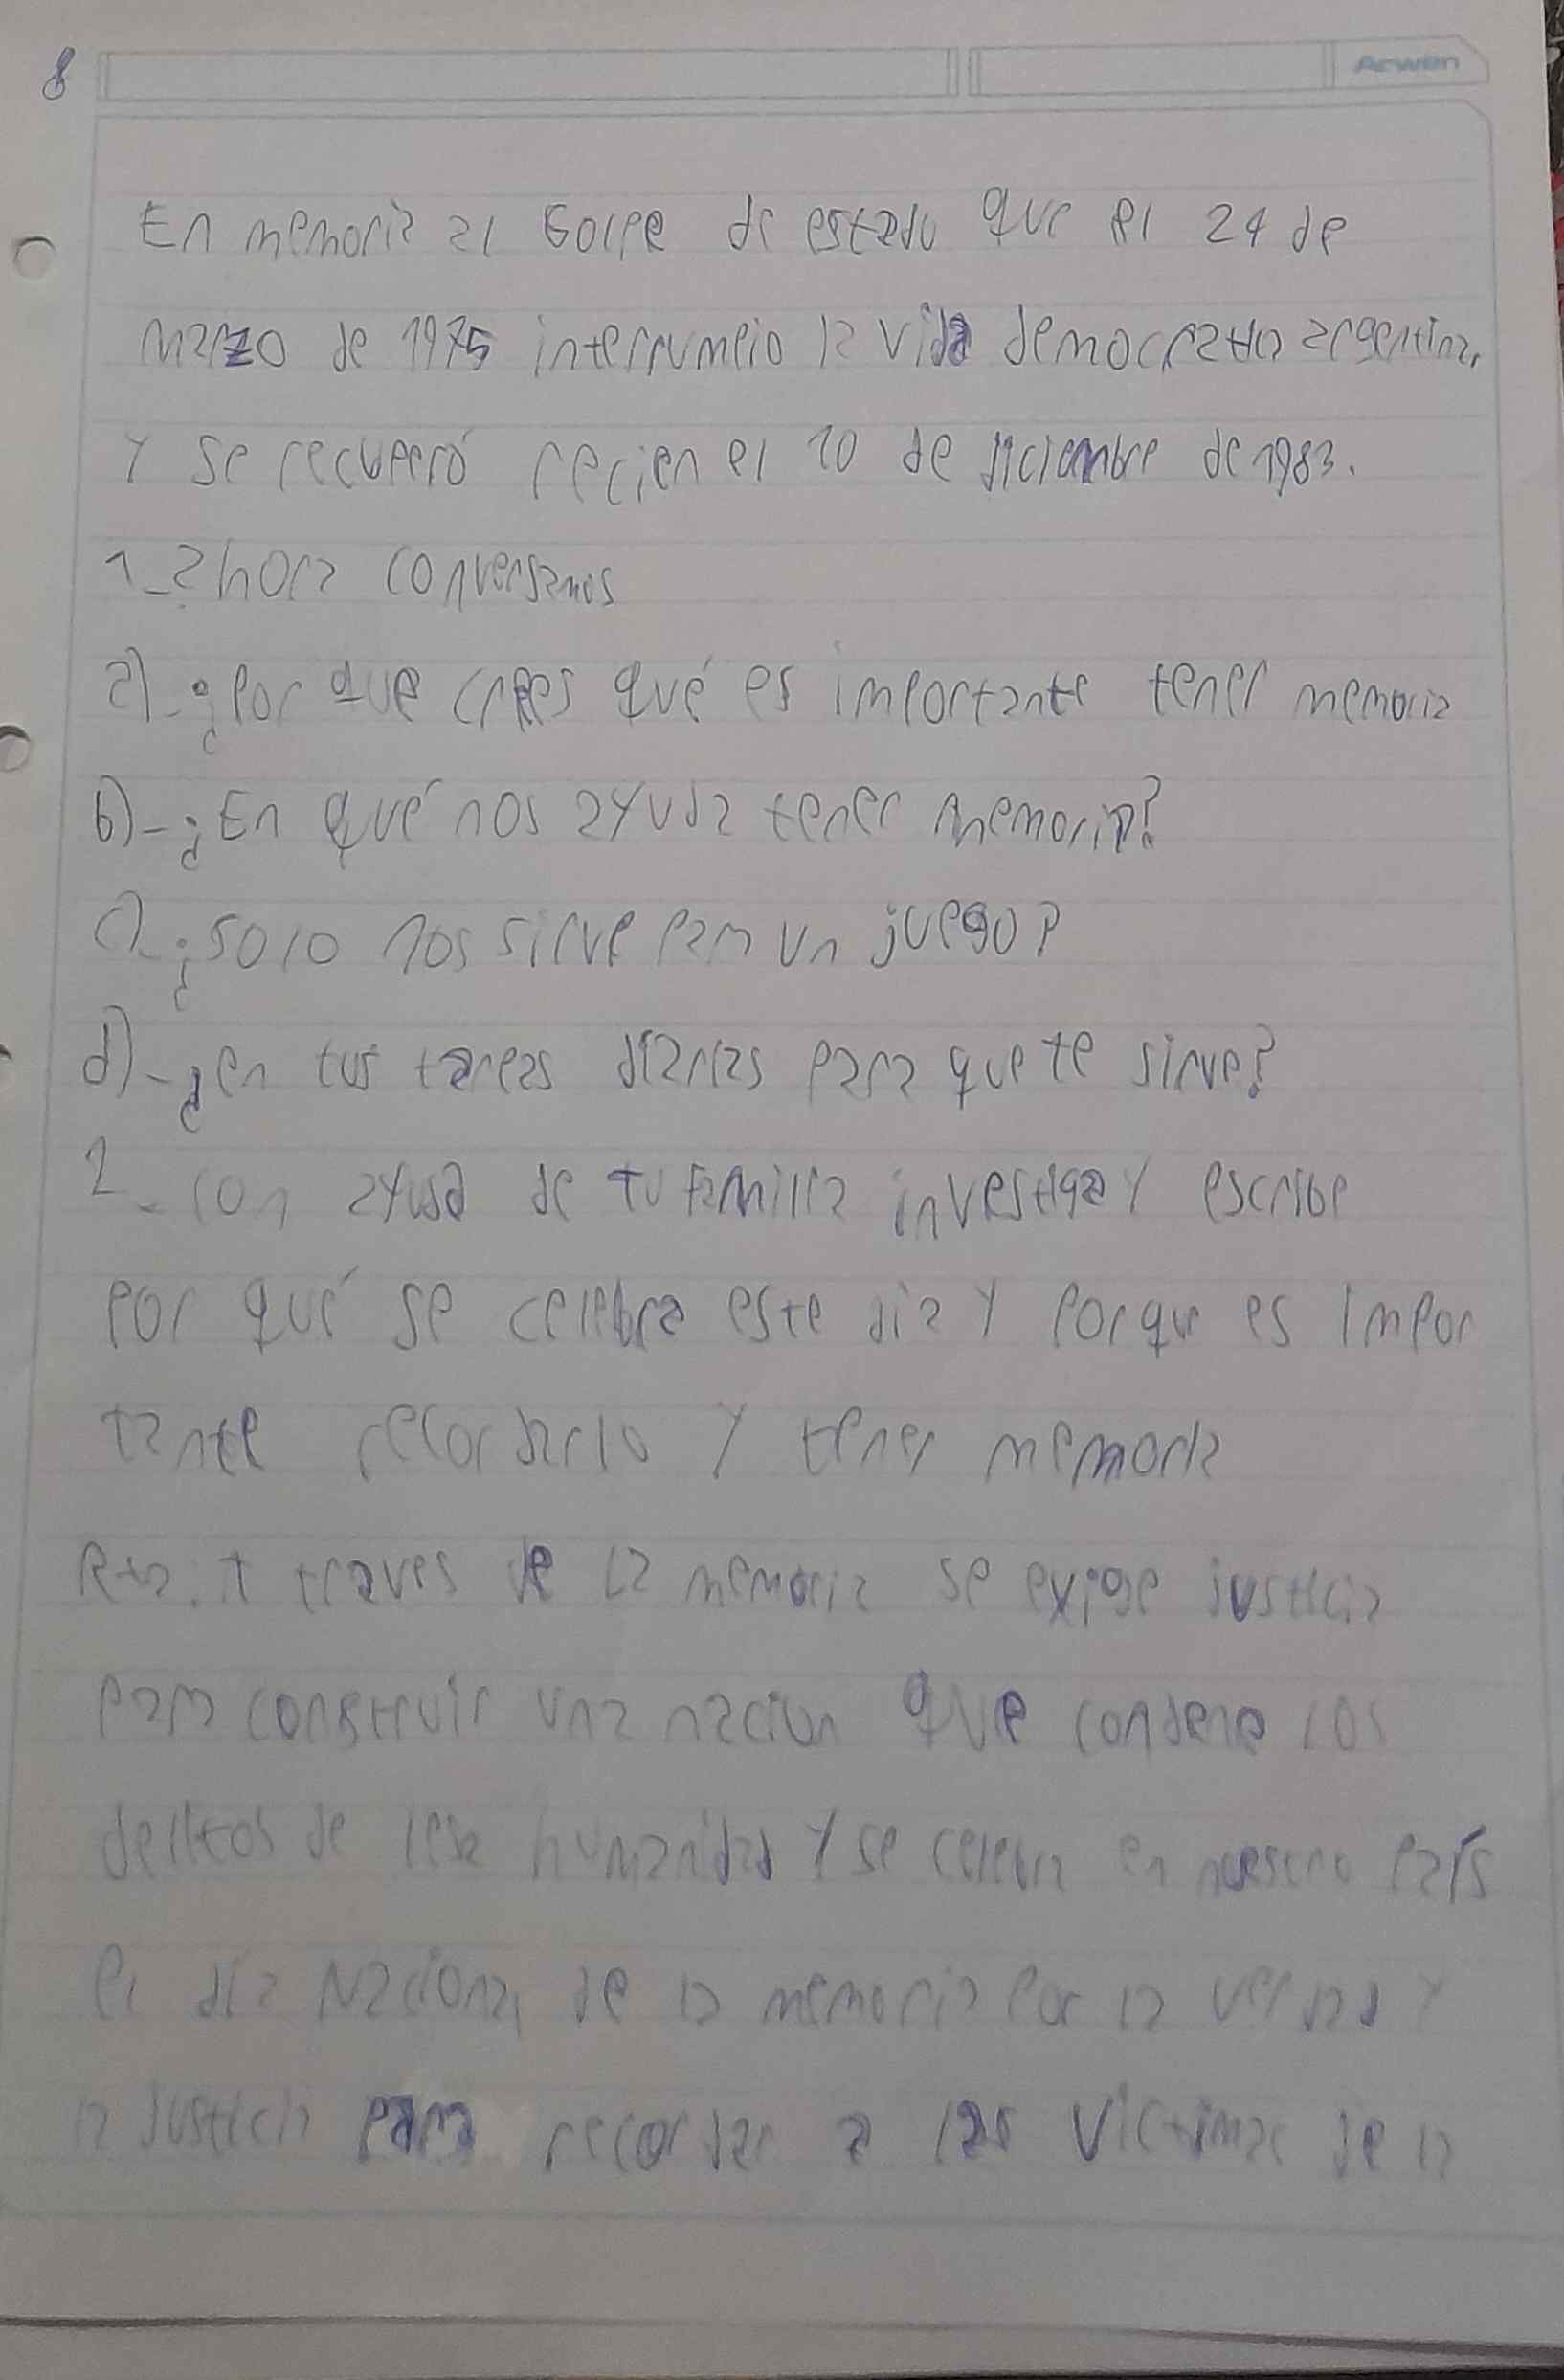 8
Arwen
En memoria al Golpe de estado que el 24 de
marzo de 1975 interrumpio la vida democratica argentina,
Y se recuperó recien el 10 de diciembre de 1983.
1_ahora conversamos
a)_¿Por que crees qué es importante tener memoria
b)_¿En qué nos ayuda tener memoria?
c)_¿solo nos sirve para un juego?
d)_¿en tus tareas diarias para que te sirve?
2_con ayuda de tu familia investiga y escribe
por qué se celebra este dia y porque es impor
tante recordarlo y tener memoria
Rta: A traves de la memoria se exige justicia
para construir una nacion que condene los
delitos de lesa humanidad y se celebra en nuestro país
el día Nacional de la memoria por la verdad y
la justicia para recordar a las victimas de la